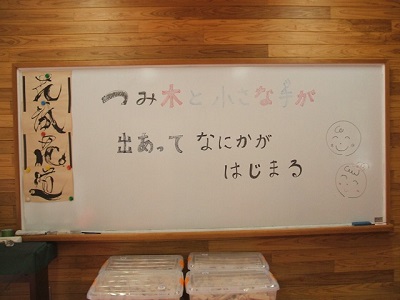 つみ木と小さな手が
出あって なにかが
はじまる